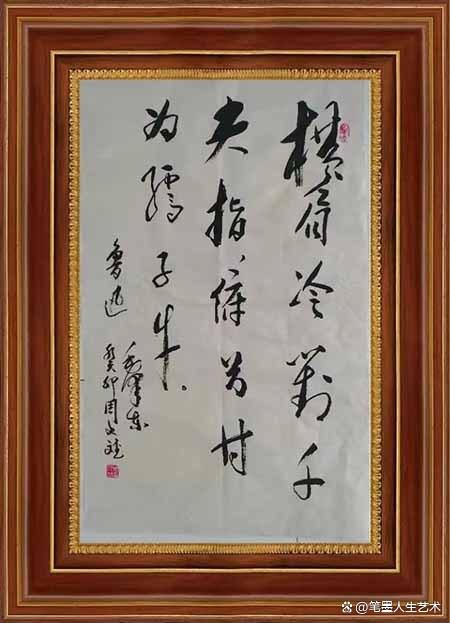 橫眉冷對千
夫指、俯首甘
为孺子牛.
魯迅
毛澤东
癸卯周文
笔墨人生艺术